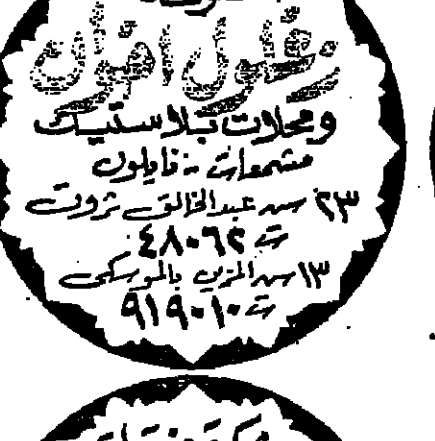 زغلول اخوان
ومحلات بلاستيك
مشمعات - نايلون
٢٣ ش عبدالخالق ثروت
ت ٤٨٠٦٢
١٣ ش المزين بالموسكى
ت ٩١٩٠١٠